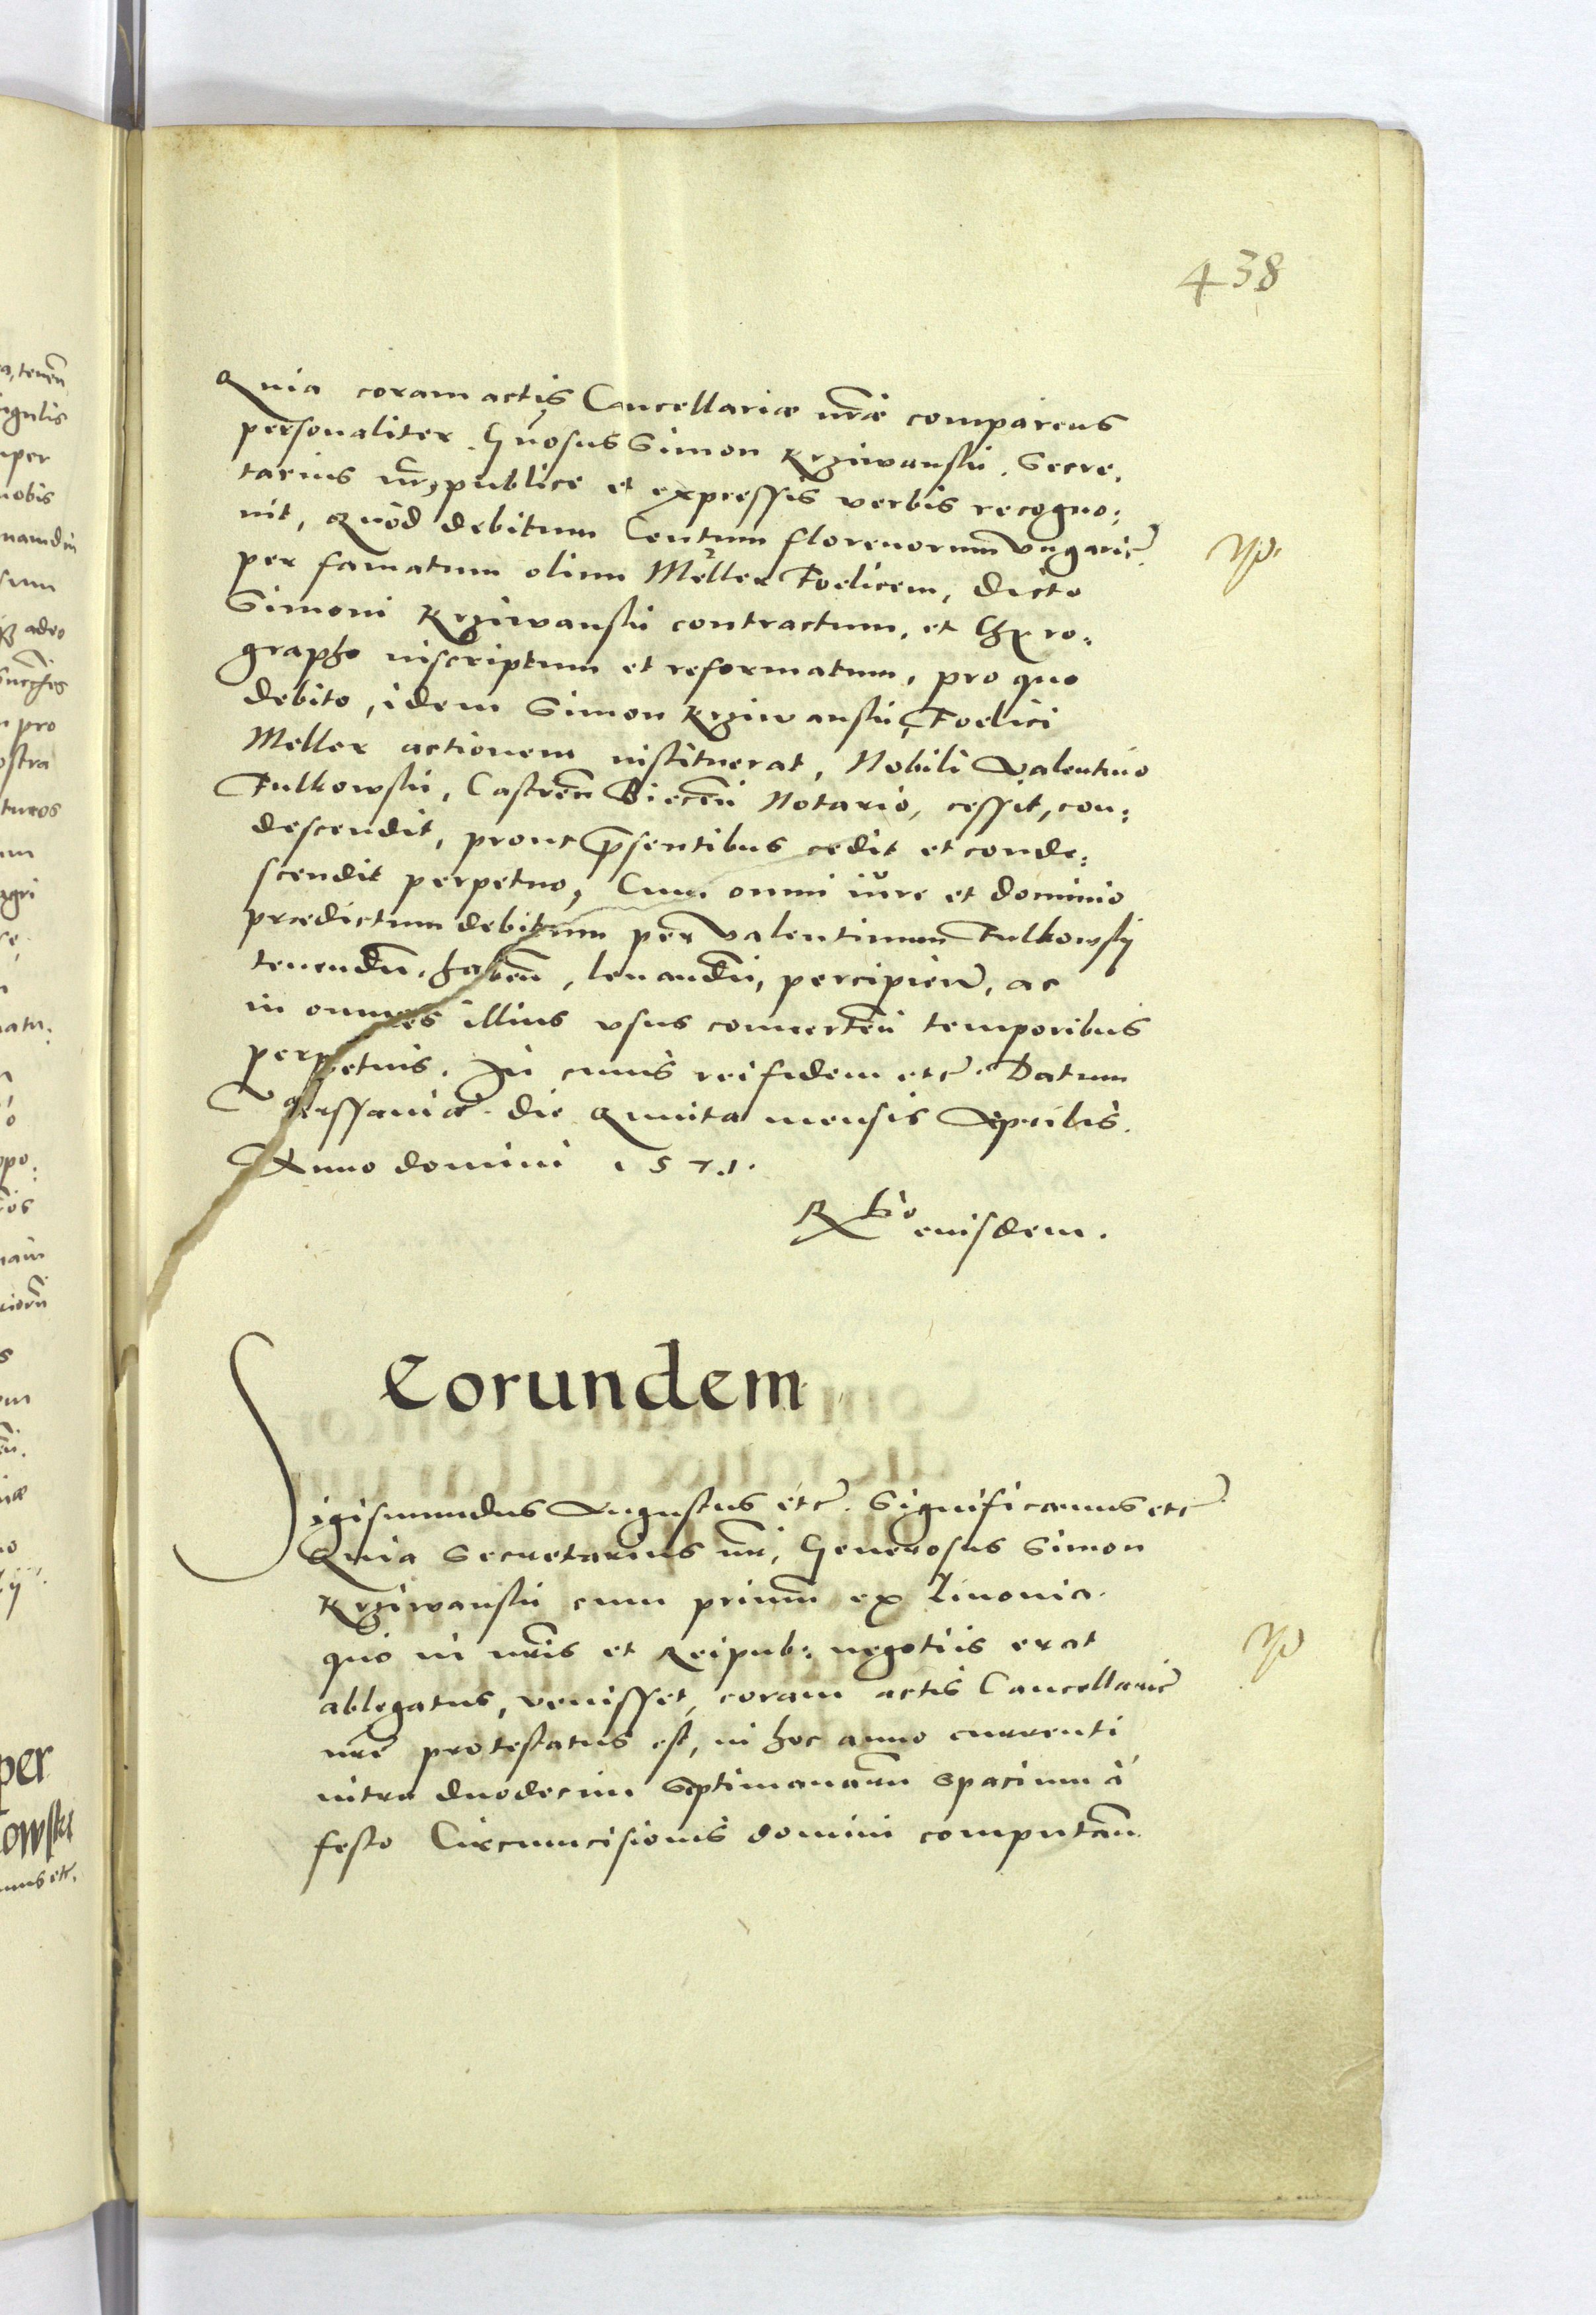 438
Quia coram actis Cancellariæ nr̃æ comparens
personaliter. Gn̄osus Simon Krziwanski. Secre,
tarius nr̄, publice et expressis verbis recogno:
uit, Quod debitum Centum florenorum Vngaric̃.
per famatum olim Meller Foelicem, dicto
Simoni Krziwanski contractum, et Chyro:
grapho inscriptum et reformatum, pro quo
debito, idem Simon Krziwanski, Foelici
Meller actionem instituerat, Nobili Valentino
Fulkowski, Castren̄ Biecen̄ Notario, cessit, con:
descendit, prout p̄sentibus cedit et conde:
scendit perpetuo, Cum omni iure et dominio
prædictum debitum per Valentinum Fulkowsky
tenendū, haben̄, leuandū, percipien̄, ac
in omnes illius vsus conuerten̄ temporibus
perpetuis. In cuius rei fidem etc̃. Datum
Varssaniæ. die Quinta mensis Aprilis.
Anno domini 1571.
eiusdem.
Eorundem
Sigismundus Augustus etc̃. Significamus etc̃
Quia Secretarius nr̄, Generosus Simon
Krziwanski cum primū ex Liuonia.
quo in nr̄is et Reipub: negotiis erat
ablegatus, venisset, coram actis Cancellariẽ
nr̄e protestatus est, in hoc anno currenti
intra duodecim Septimanarū spacium à
festo Circumcisionis domini computan̄